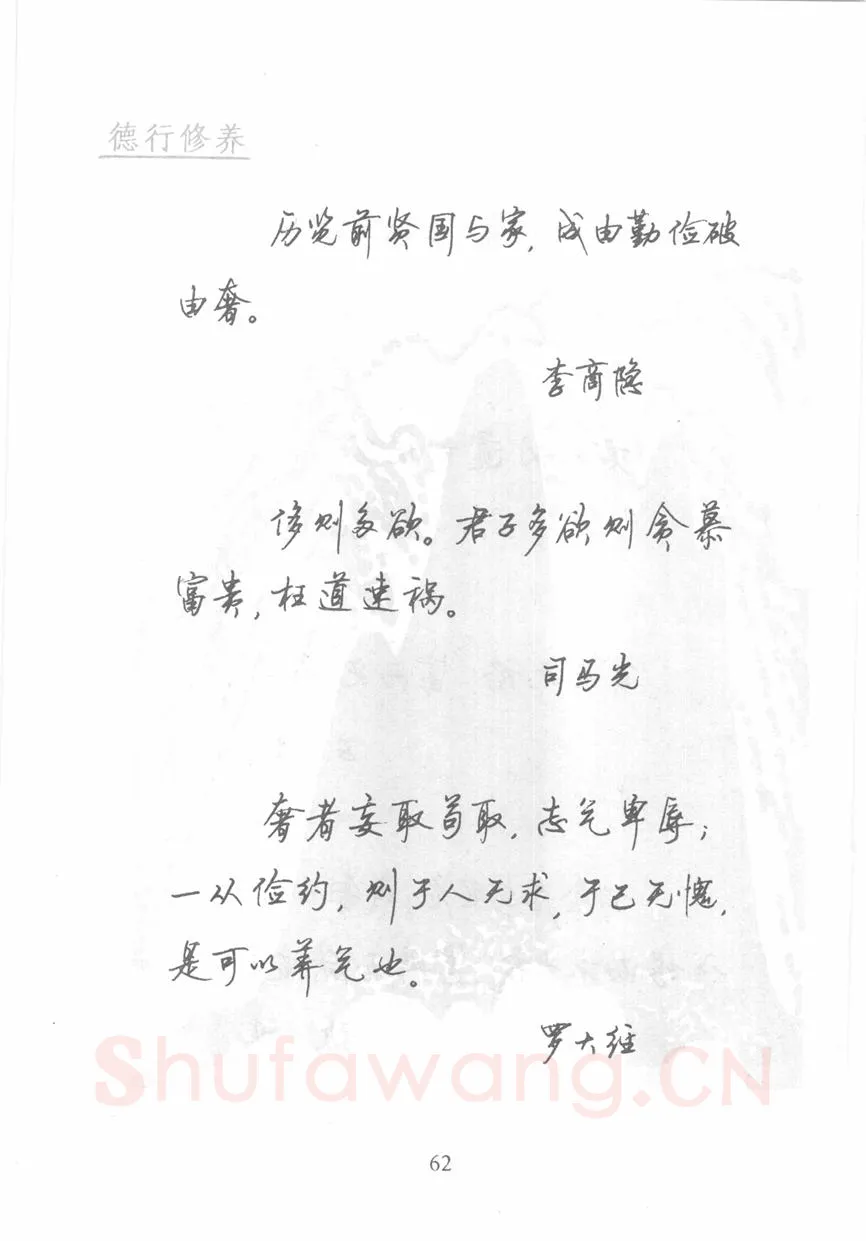 德行修养
历览前贤国与家，成由勤俭破
由奢。
李商隐
侈则多欲。君子多欲则贪慕
富贵，枉道速祸。
司马光
奢者妄取苟取，志气卑辱；
一从俭约，则于人无求，于己无愧，
是可以养气也。
罗大经
Shufawang.CN
62